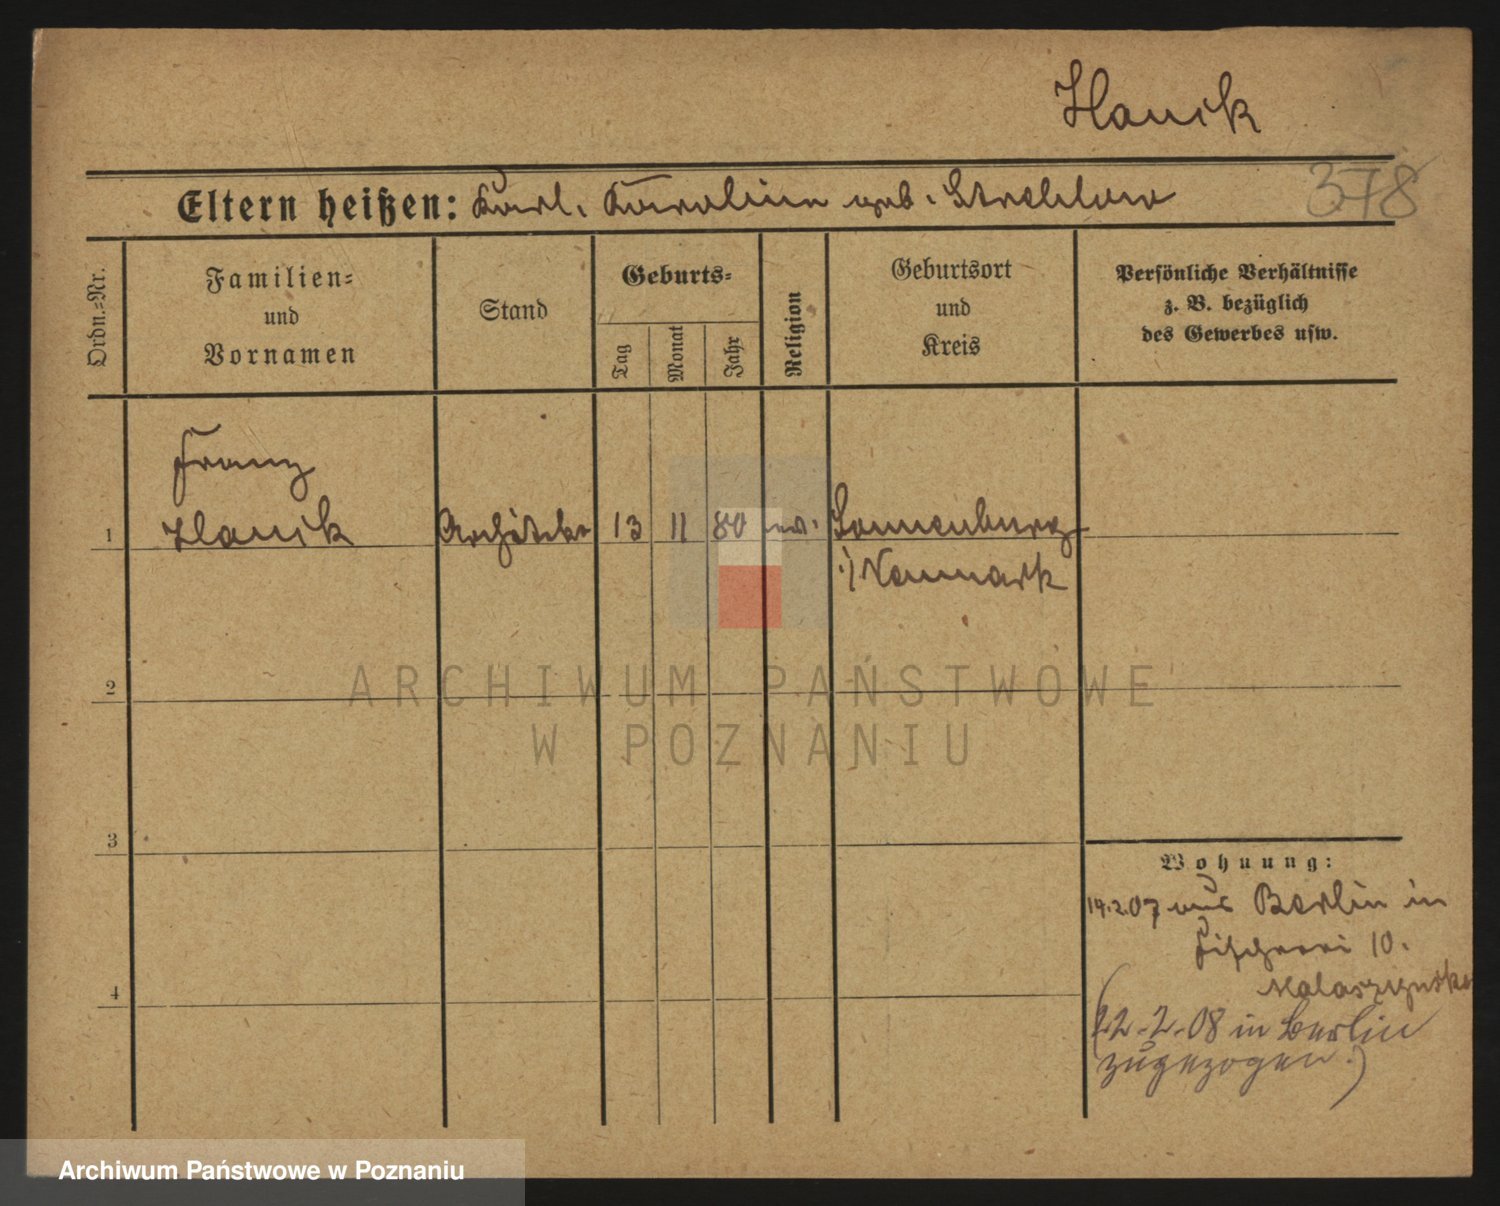 Hanik
Eltern heißen: Karl. Karoline geb. Strehlow
378
Ordn.=Nr.
Familien=
und
Vornamen
Stand
Geburts=
Tag
Monat
Jahr
Religion
Geburtsort
und
Kreis
Persönliche Verhältnisse
z. B. bezüglich
des Gewerbes usw.
Franz
1 Hanik Architekt 13 11 80 ev. Sonnenburg
i/ Neumark
2
ARCHIWUM PAŃSTWOWE
W POZNANIU
3
Wohnung:
14.2.07 aus Berlin in
Fischerei 10.
4
(22-2-08 in Berlin
zugezogen.)
Archiwum Państwowe w Poznaniu